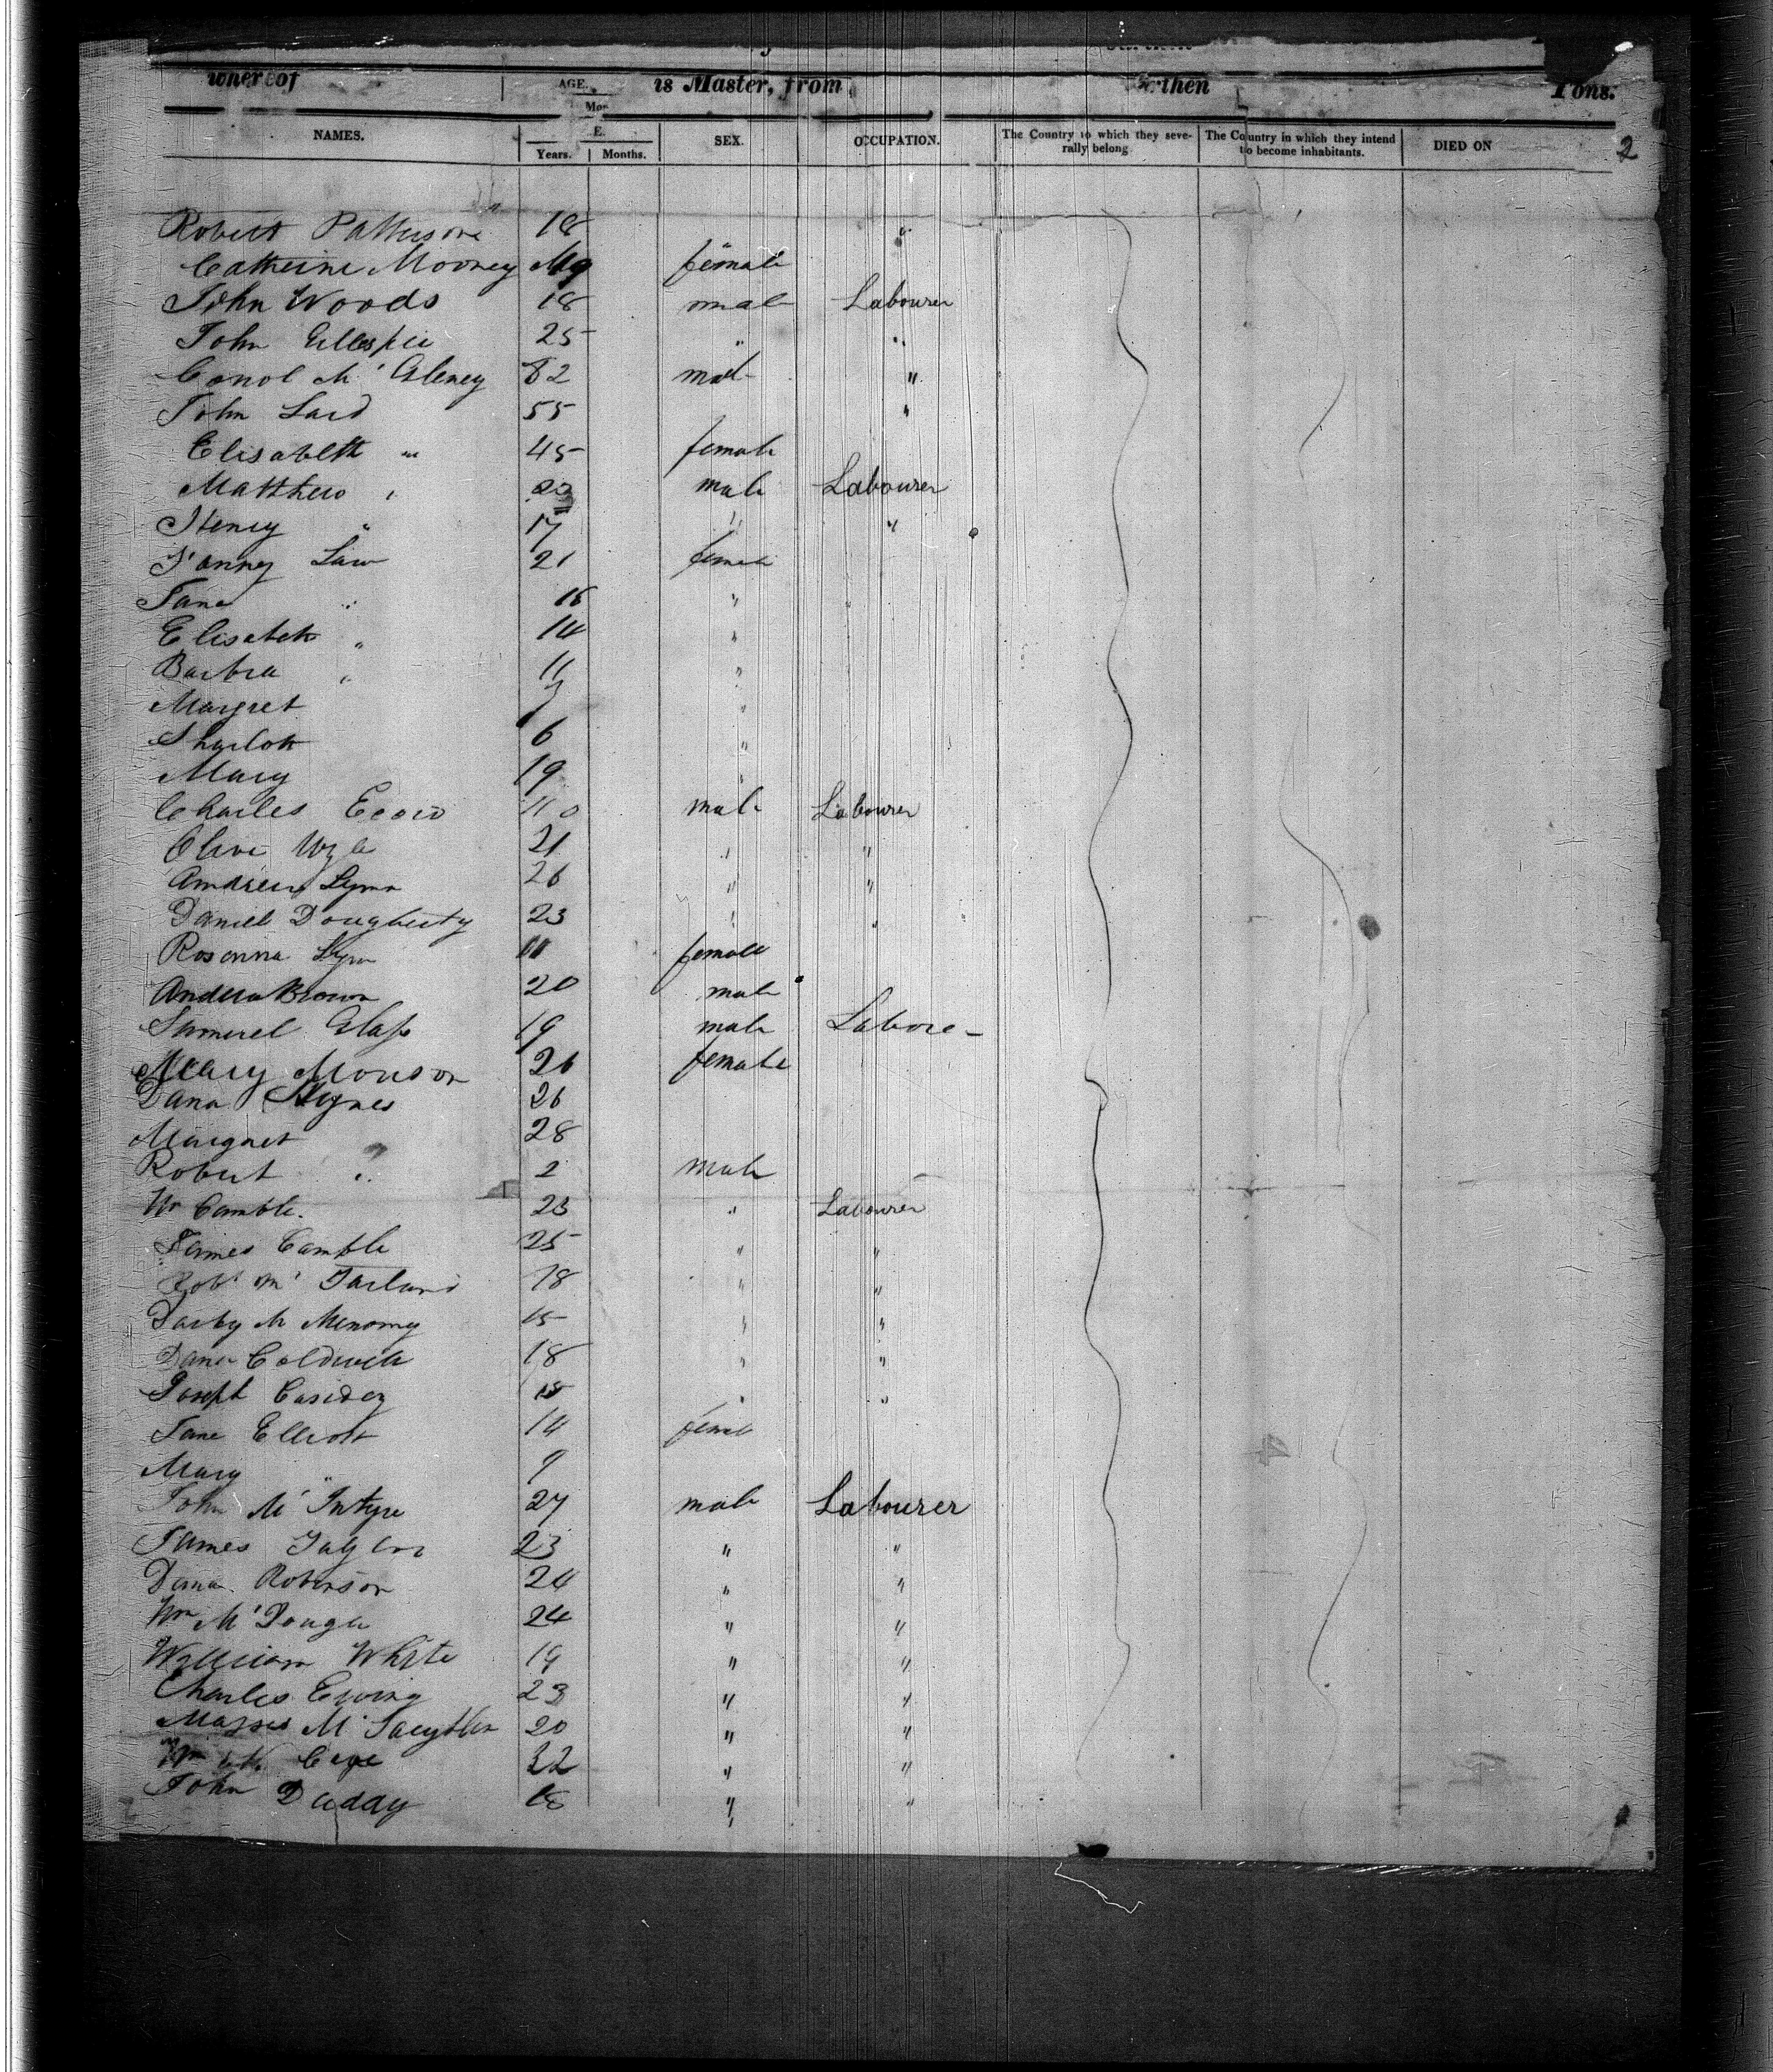 wner of is Master, from rthen Tons.
AGE.
Mon
NAMES. E. SEX. OCCUPATION. The Country to which they severally belong The Country in which they intend to become inhabitants. DIED ON 2
Years. Months.
Robert Patterson 18 "
Catherine Mooney female
John Woods 18 male Labourer
John Gillespie 25 " "
Conol Mc Gleney male "
John Laid 55 "
Elisabeth " 45 female
Matthew " male Labourer
Henry " 17 " "
Fanny Law 21 female
Jane " "
Elisabeth " 14 "
Barbra " 11 "
Margret "
Sharlott 6 "
Mary 19 "
Charles male Labourer
21 " "
Andrew Lynn 26 " "
Daniel Dougherty 23 " "
Rosanna Lynn 11 female
Andrew Brown 20 male
Samuel Glass 19 male Labore
Mary Morison 26 female
26
Margaret 28
Robert " 2 male
Wm Camble. 23 " Labourer
James Camble 25 " "
Robt Mc Farland 18 " "
Darby Mc Menomy 15 " "
Coldwell 18 " "
Joseph Casidey " "
Jane Elliott 14 female
Mary " 9
John Mc Intyre 27 male Labourer
James Taylor 23 " "
Robinson 24 " "
Wm Mc 24 " "
William White 19 " "
Charles Ewing 23 " "
Mc 20 " "
Wm " "
John 18 " "
"